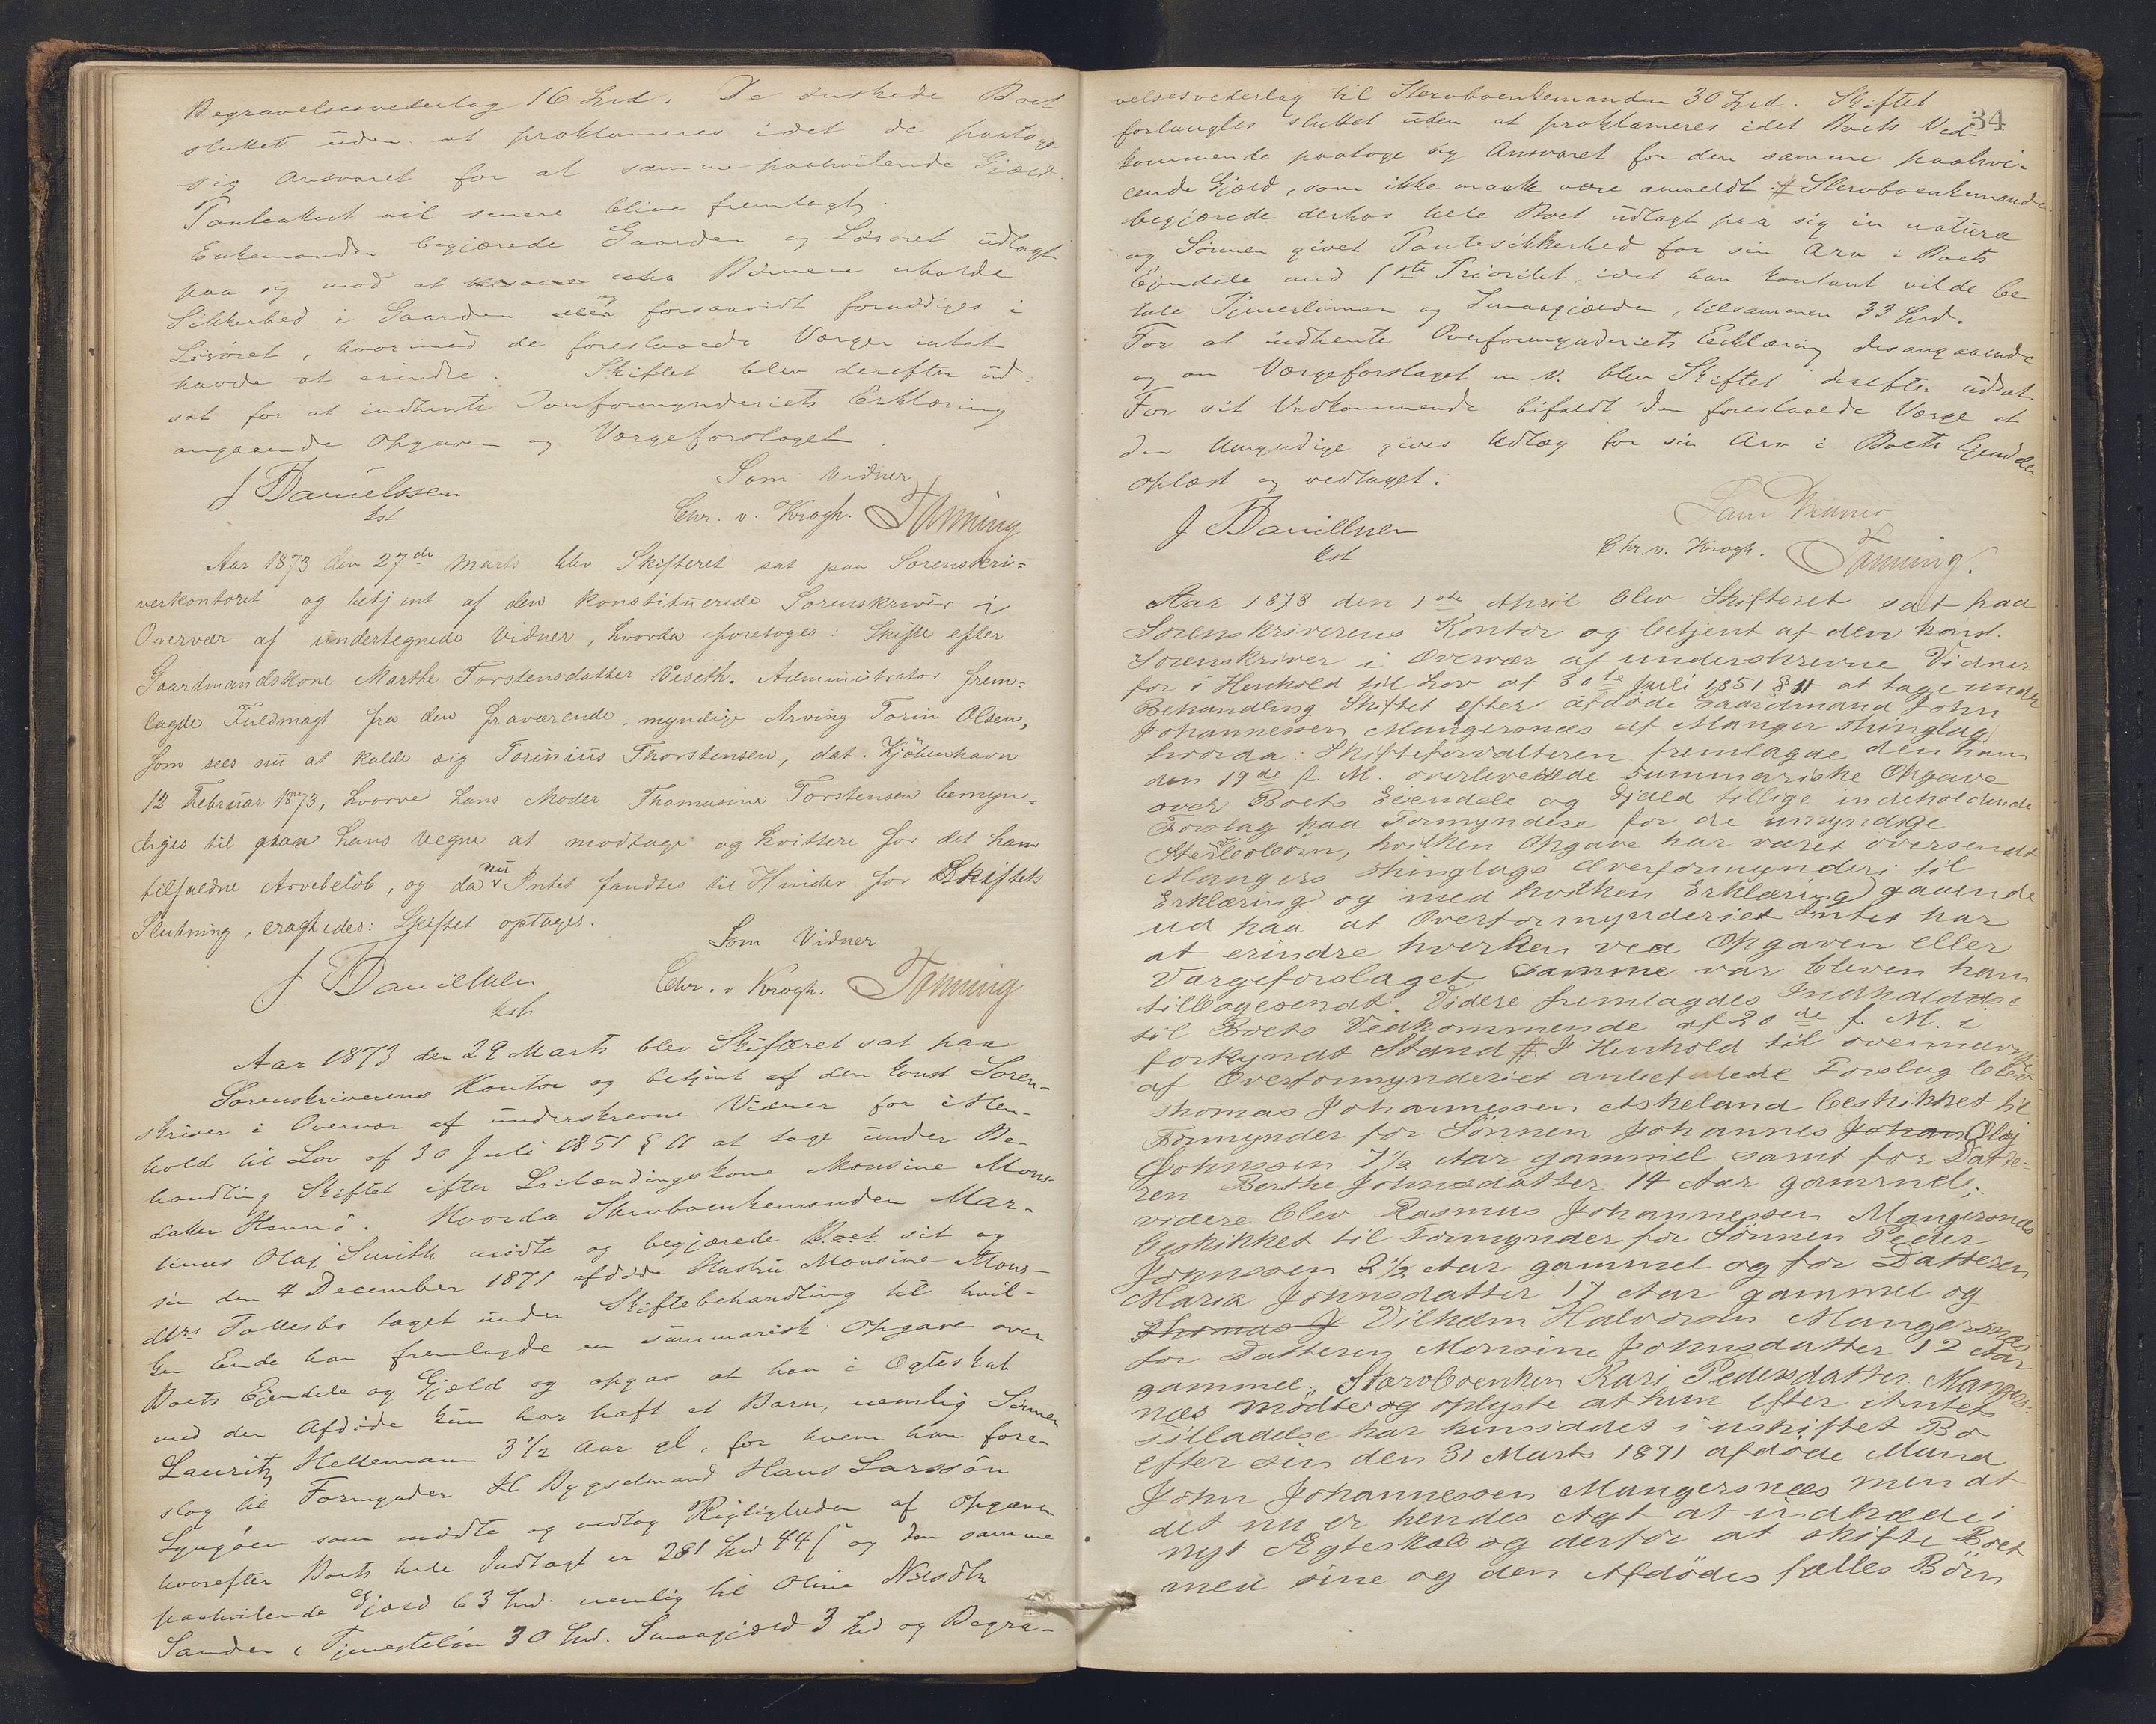 Begravelsesvederlag 16 Spd. De önskede Boet
sluttet uden at proklameres idet de paatoge
sig Ansvaret for al samme paahvilende Gjæld.
vil senere blive fremlagt.
Enkemanden begjærede Gaarden og Lösöret udlagt
paa sig mod at Börnene erholde
Sikkerhed i Gaarden og forsaavidt fornödiges i
Lösöret, hvorimod de foreslaaede Værger intet
havde at erindre. Skiftet blev derefter ud-
sat for at indhente Overformynderiets Erklæring
angaaende Opgaven og Værgeforslaget.
J Danielssen
kst
Som Vidner
Chr. v. Krogh. Tönning
Aar 1873 den 27de Marts blev Skifteret sat paa Sorenskri=
verkontoret og betjent af den konstituerede Sorenskriver i
Overvær af undertegnede Vidner, hvorda foretoges: Skifte efter
Gaardmandskone Marthe Torstensdatter Viseth. Administrator frem=
lagde Fuldmagt fra den fraværende, myndige Arving Torin Olsen,
som sees nu at kalde sig Torinius Thorstensen, dat. Kjöbenhavn
12 Februar 1873, hvorved hans Moder Thomasine Torstensen bemyn-
diges til paa hans Vegne at modtage og kvittere for det ham
tilfaldne Arvebelöb, og da nu Intet fandtes til Hinder for Skiftets
Slutning, eragtedes: Skiftet optages.
J Danielssen
kst
Som Vidner
Chr. v Krogh. Tönning
Aar 1873 den 29 Marts blev Skifteret sat paa
Sorenskriverens Kontor og betjent af den konst Soren-
skriver i Overvær af underskrevne Vidner for i Hen-
hold til Lov af 30 Juli 1851 § 11 at tage under Be-
handling Skiftet efter Leilændingskone Monsine Mons-
datter Hennö. Hvorda Stervboenkemanden Mar-
tinus Olaj Smith mödte og begjærede Boet sit og
sin den 4 December 1871 afdöde Hustru Monsine Mons-
dtrs Fællesbo taget under Skiftebehandling til hvil-
ken Ende han fremlagde en summarisk Opgave over
Boets Ejendele og Gjæld og opgav at han i Ægteskab
med den Afdöde kun har haft et Barn, nemlig Sönnen
Lauritz Hellemann 3 1/2 Aar gl, for hvem han fore-
slog til Formynder Bygselmand Hans Larssön
Lyngöen som mödte og vedtog Rigtigheden af Opgaven
hvorefter Boets hele Indtægt er 281 Spd 44 ſ og den samme
paahvilende Gjæld 63 Spd. nemlig til Oline Nilsdtr
Sanden i Tjenestelön 30 Spd. Smaagjæld 3 Spd og Begra-
34
velsesvederlag til Stervboenkemanden 30 Spd. Skiftet
forlangtes sluttet uden at proklameres idet Boets Ved-
kommende paatoge sig Ansvaret for den samme paahvi-
lende Gjæld, som ikke maatte være anmeldt. # Stervboenkemanden
begjærede derhos hele Boet udlagt paa sig in natura
og Sönnen givet Pantesikkerhed for sin Arv i Boets
Ejendele med 1ste Prioritet, idet han kontant vilde be-
tale Tjenerlönnen og Smaagjælden, tilsammen 33 Spd.
For at indhente Overformynderiets Erklæring desangaaende
og om Værgeforslaget m. V. blev Skiftet derefter udsat.
For sit Vedkommende bifaldt den foreslaaede Værge at
den Umyndige gives Udlæg for sin Arv i Boets Ejendele
Oplæst og vedtaget.
J Danielssen
kst
Som Vidner
Chr. v. Krogh. Tönning.
Aar 1873 den 1ste April blev Skifteret sat paa
Sorenskriverens Kontor og betjent af den konst.
Sorenskriver i Overvær af underskrevne Vidner
for i Henhold til Lov af 30te Juli 1851 § 11 at tage under
Behandling Skiftet efter afdöde Gaardmand John
Johannessen Mangersnæs af Manger Thinglag,
hvorda Skifteforvalteren fremlagde den ham
den 19de f. M. overleverede summariske Opgave
over Boets Eiendele og Gjæld tillige indeholdende
Forslag paa Formyndere for de umyndige
Stervbobörn, hvilken Opgave har været oversendt
Mangers Thinglags Overformynderi til
Erklæring og med hvilken Erklæring gaaende
ud paa at Overformynderiet Intet har
at erindre hverken ved Opgaven eller
Værgeforslaget samme var bleven ham
tilbagesendt. Videre fremlagdes Indkaldelse
til Boets Vedkommende af 20de f. M. i
forkyndt Stand # I Henhold til ovennævnte
af Overformynderiet anbefalede Forslag blev
Thomas Johannessen Askeland beskikket til
Formynder for Sönnen Johannes Johan Olaj
Johnssen 7 1/2 Aar gammel samt for Datte-
ren Berthe Johnsdatter 14 Aar gammel;
videre blev Rasmus Johannessen Mangersnæs
beskikket til Formynder for Sönnen Peder
Johnssen 2 1/2 Aar gammel og for Datteren
Maria Johnsdatter 17 Aar gammel og
Thomas J Vilhelm Halvorsen Mangersnæs
for Datteren Monsine Johnsdatter 12 Aar
gammel. Stervboenken Kari Pedersdatter Mangers-
næs mödte og oplyste at hun efter Amtets
Tilladelse har hensiddet i uskiftet Bo
efter sin den 31 Marts 1871 afdöde Mand
John Johannessen Mangersnæs men at
det nu er hendes Agt at indtræde i
nyt Ægteskab og derfor at skifte Boet
med sine og den Afdödes fælles Börn